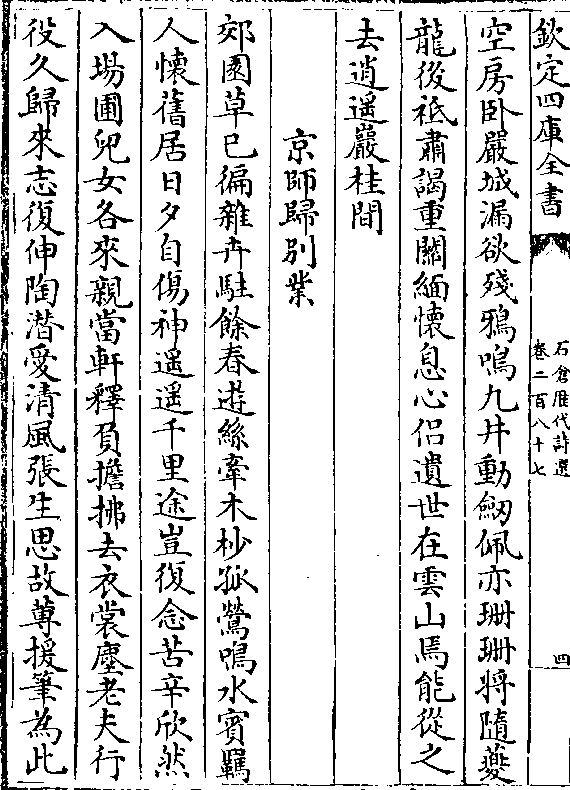 欽定四庫全書
石倉歴代詩選
卷二百八十七
四
空房卧嚴城漏欲殘鴉鳴九井動劒佩亦珊珊將隨夔
龍後祗肅謁重關緬懷息心侣遺世在雲山焉能從之
去逍遥巖桂間
京師歸别業
郊園草已徧雜卉駐餘春逰絲牽木杪孤鶯鳴水賓羈
人懷舊居日夕自傷神遥遥千里途豈復念苦辛欣然
入場圃兒女各來親當軒釋負擔拂去衣裳塵老夫行
役久歸來志復伸陶潛愛清風張生思故蓴援筆為此